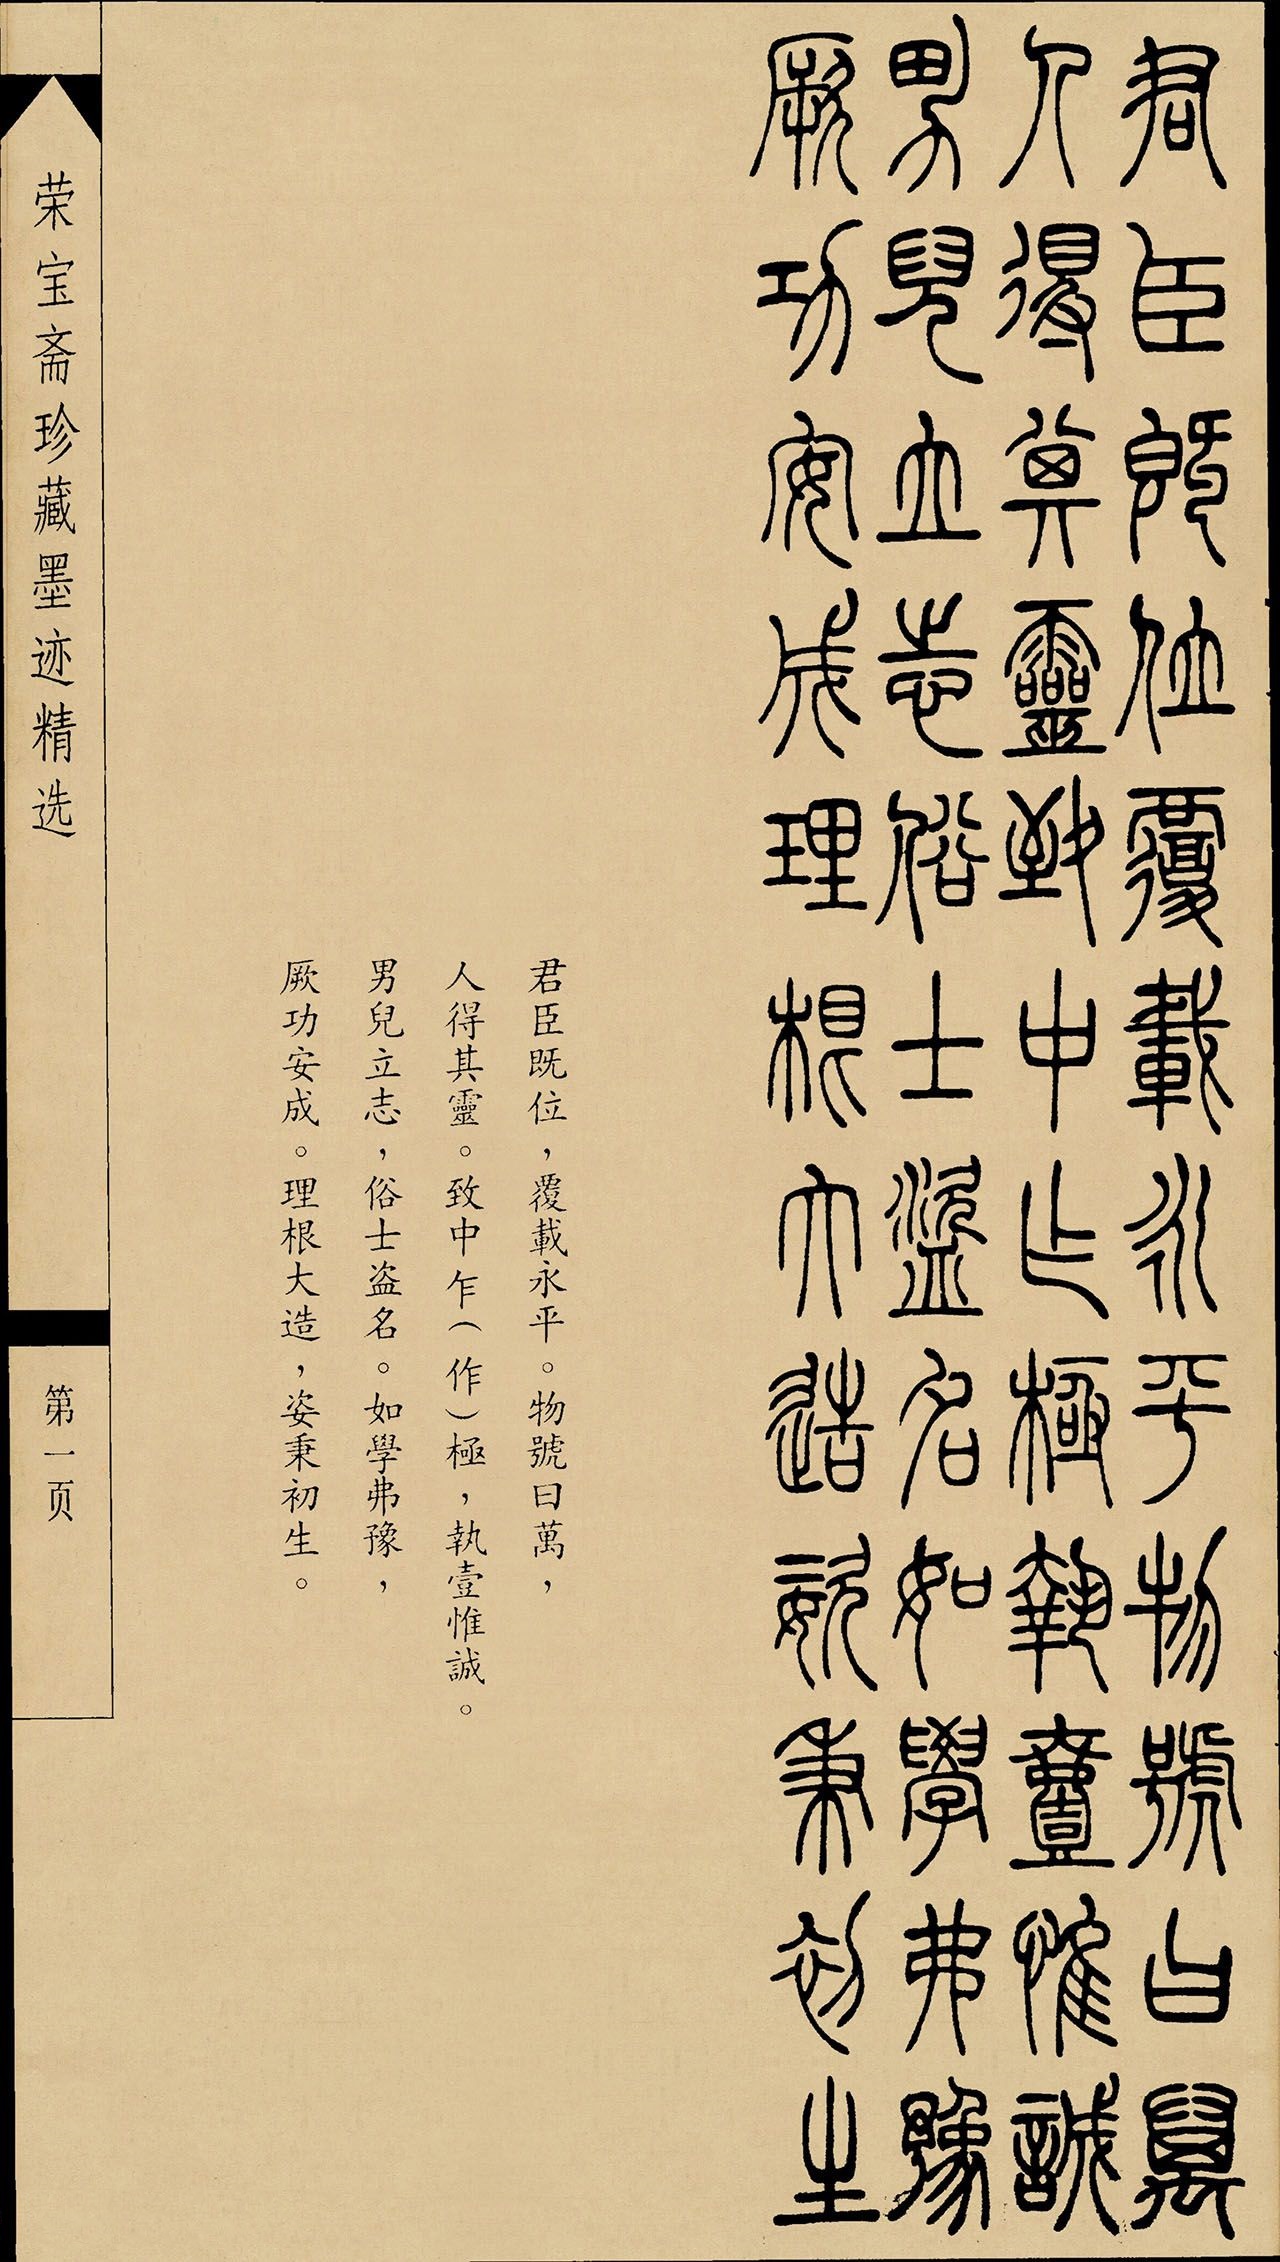 君臣既位覆載永平物號曰萬
人得其靈致中乍極執壹惟誠
男兒立志俗士盗名如學弗豫
厥功安成理根大造姿秉初生
君臣既位，覆載永平。物號曰萬，
人得其靈。致中乍（作）極，執壹惟誠。
男兒立志，俗士盗名。如學弗豫，
厥功安成。理根大造，姿秉初生。
荣宝斋珍藏墨迹精选
第一页